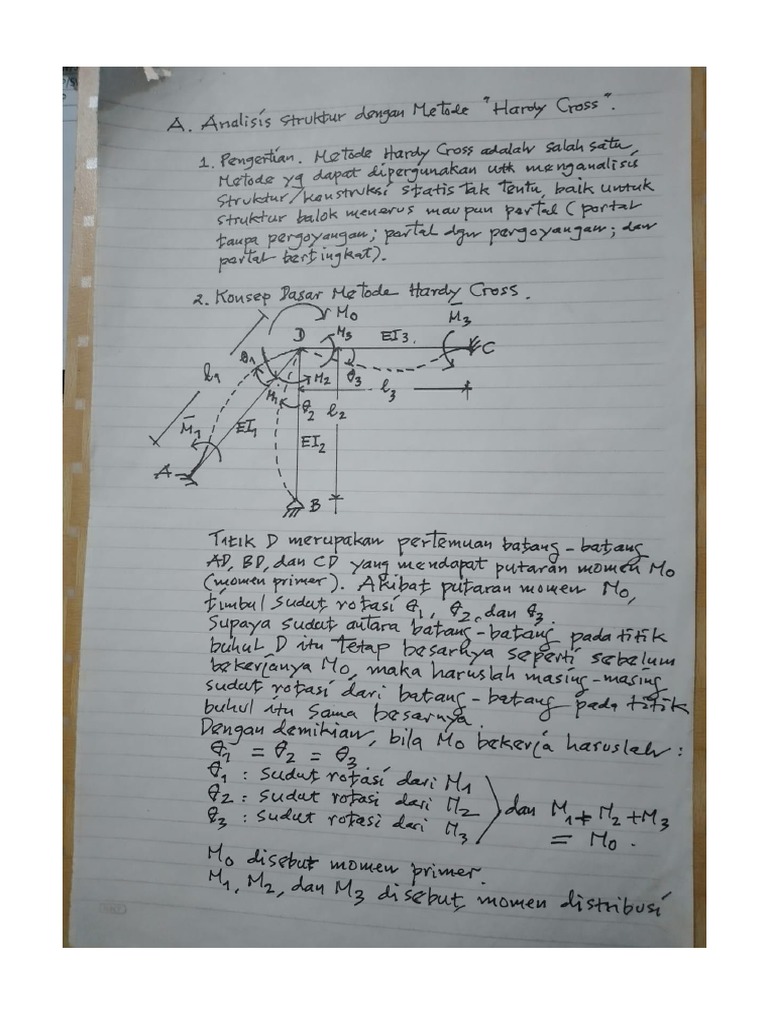 A. Analisis Struktur dengan Metode "Hardy Cross".
1. Pengertian. Metode Hardy Cross adalah salah satu
Metode yg dapat dipergunakan utk menganalisis
Struktur/konstruksi statis tak tentu, baik untuk
struktur balok menerus maupun portal (portal
tanpa pergoyangan; portal dgn pergoyangan; dan
portal bertingkat).
2. Konsep Dasar Metode Hardy Cross.
M0
D M3 EI3. M̅3
C
θ1 M2 θ3 l3
l1 M1 θ2 l2
M̅1 EI1 EI2
A
B
Titik D merupakan pertemuan batang-batang
AD, BD, dan CD yang mendapat putaran momen M0
(momen primer). Akibat putaran momen M0,
timbul sudut rotasi θ1, θ2, dan θ3.
Supaya sudut antara batang-batang pada titik
buhul D itu tetap besarnya seperti sebelum
bekerjanya M0, maka haruslah masing-masing
sudut rotasi dari batang-batang pada titik
buhul itu sama besarnya.
Dengan demikian, bila M0 bekerja haruslah :
θ1 = θ2 = θ3
θ1 : sudut rotasi dari M1
θ2 : sudut rotasi dari M2
θ3 : sudut rotasi dari M3
dan M1 + M2 + M3
= M0.
M0 disebut momen primer.
M1, M2, dan M3 disebut momen distribusi